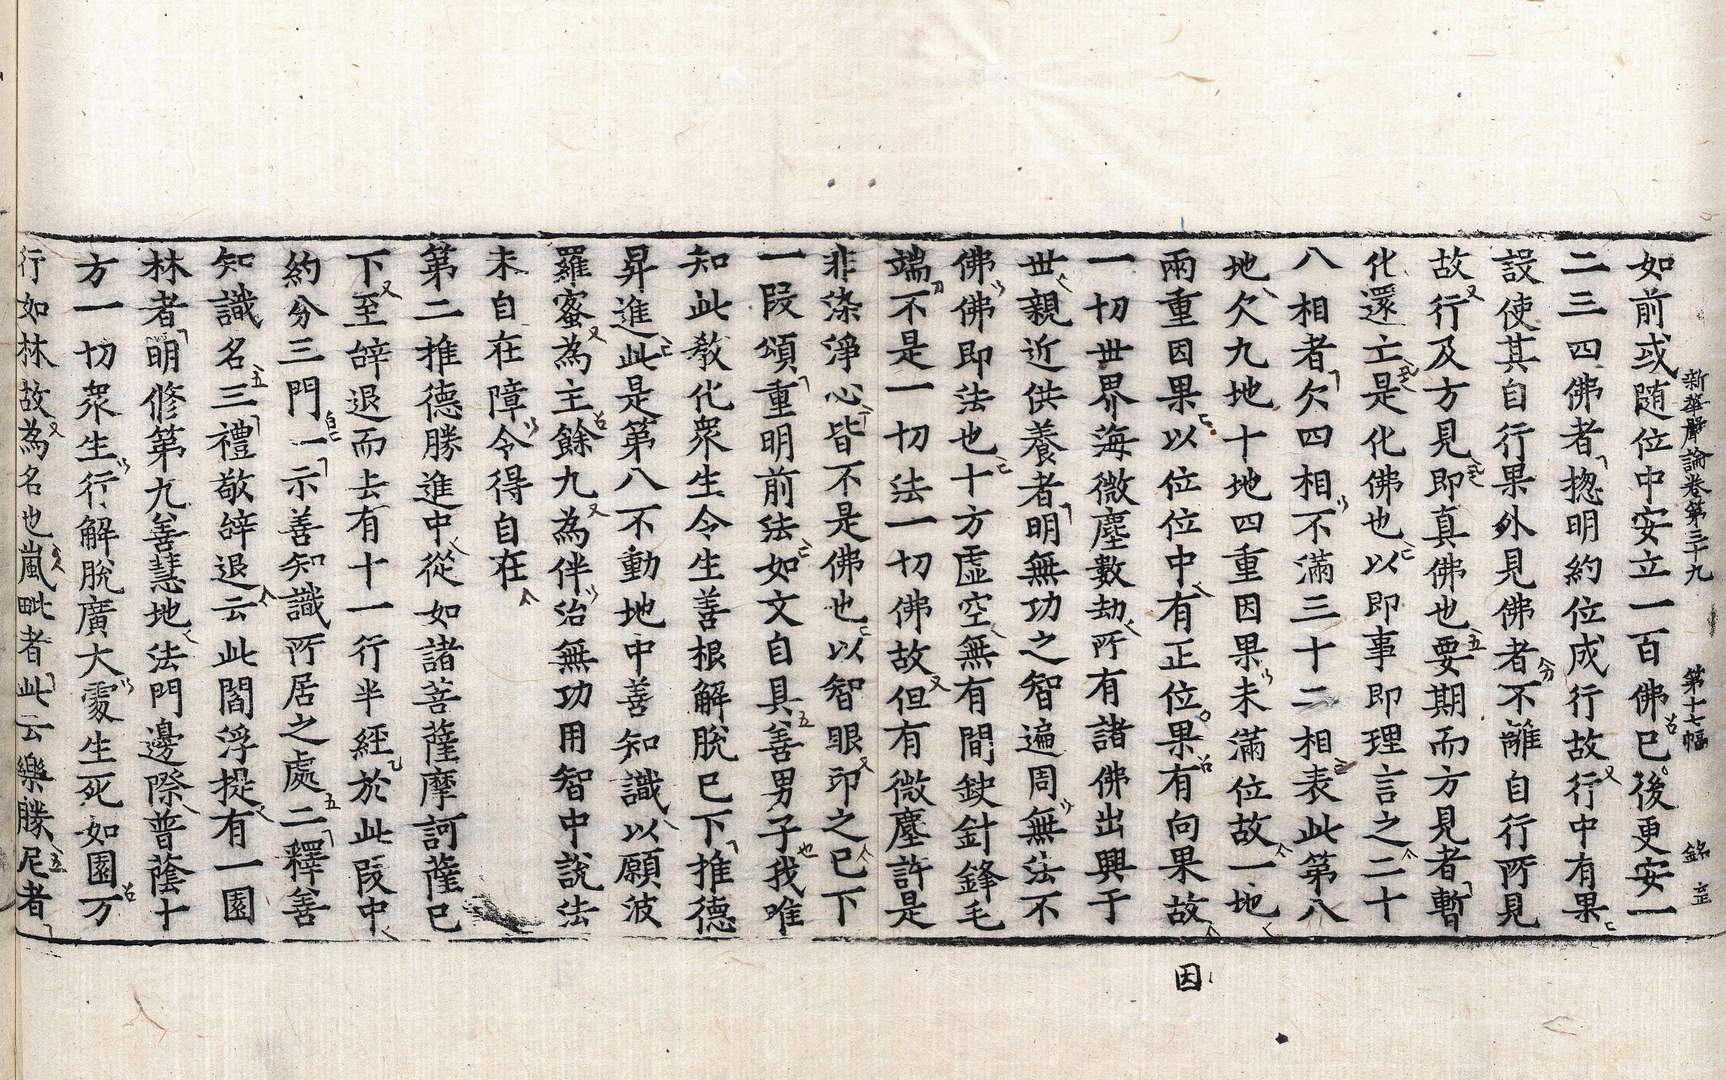 新華嚴論卷第三十九 第十七幅 銘立
如前或随位中安立一百佛已後更安一
二三四佛者揔明約位成行故行中有果
設使其自行果外見佛者不離自行所見
故行及方見即真佛也要期而方見者暫
化還亡是化佛也以即事即理言之二十
八相者欠四相不滿三十二相表此第八
地欠九地十地四重因果未滿位故一地
兩重因果以位位中有正位果有向果故
因
一切世界海微塵數劫所有諸佛出興于
世親近供養者明無功之智遍周無法不
佛佛即法也十方虛空無有間缺針鋒毛
端不是一切法一切佛故但有微塵許是
非染淨心皆不是佛也以智眼印之已下
一段頌重明前法如文自具善男子我唯
知此教化衆生令生善根解脫已下推德
昇進此是第八不動地中善知識以願波
羅蜜為主餘九為伴治無功用智中說法
未自在障令得自在
第二推德勝進中從如諸菩薩摩訶薩已
下至辝退而去有十一行半經於此段中
約分三門一示善知識所居之處二釋善
知識名三禮敬辝退云此閻浮提有一園
林者明修第九善慧地法門邊際普蔭十
方一切衆生行解脫廣大覆生死如園万
行如林故為名也嵐毗者此云樂勝尼者